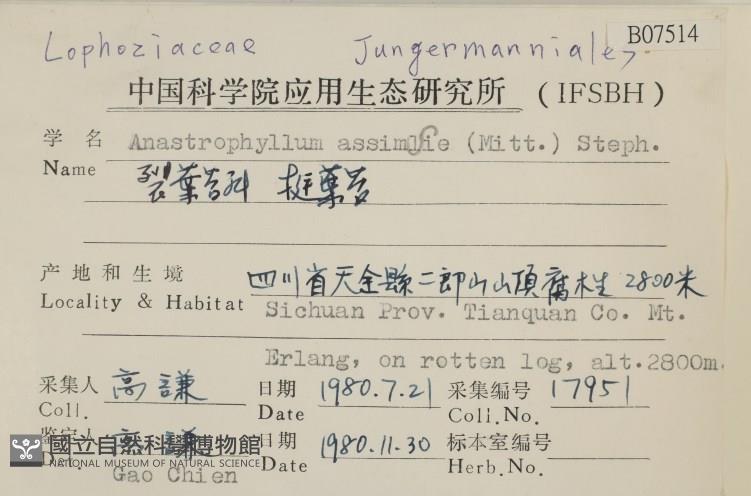 B07514
Lophoziaceae Jungermanniales
中国科学院应用生态研究所 (IFSBH)
学名 Anastrophyllum assimlie (Mitt.) Steph.
Name 裂葉苔科 挺葉苔
产地和生境 四川省天全縣二郎山山頂腐木生 2800米
Locality & Habitat Sichuan Prov. Tianquan Co. Mt.
Erlang, on rotten log, alt.2800m.
采集人 高謙 日期 1980.7.21 采集编号 17951
Coll. Date Coll.No.
鉴定人 高謙 日期 1980.11.30 标本室编号
Det Gao Chien Date Herb.No.
國立自然科學博物館
NATIONAL MUSEUM OF NATURAL SCIENCE